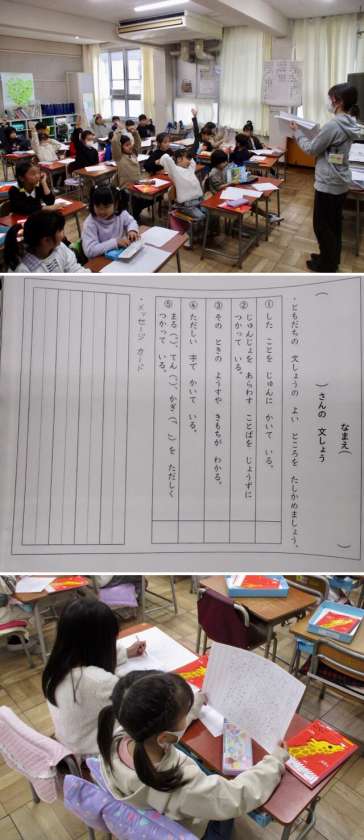 なまえ(　　　)
(　　　)さんの　文しょう
・ともだちの　文しょうの　よい　ところを　たしかめましょう。
① した　ことを　じゅんに　かいて　いる。
② じゅんじょを　あらわす　ことばを　じょうずに
つかって　いる。
③ その　ときの　ようすや　きもちが　わかる。
④ ただしい　字で　かいて　いる。
⑤ まる(。)、てん(、)、かぎ(「　」)を　ただしく
つかって　いる。
・メッセージ　カード